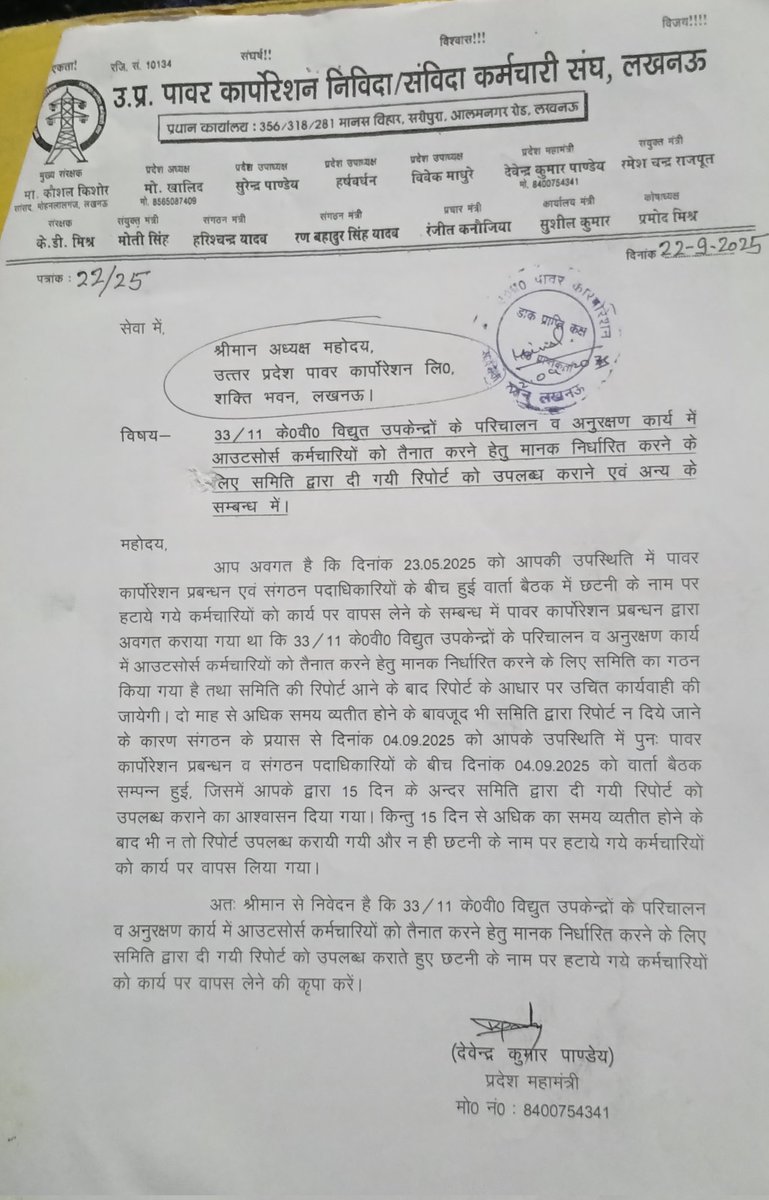 एकता!
रजि. सं. 10134
संघर्ष!!
विश्वास!!!
विजय!!!!
उ.प्र. पावर कार्पोरेशन निविदा/संविदा कर्मचारी संघ, लखनऊ
प्रधान कार्यालय : 356/318/281 मानस विहार, सरीपुरा, आलमनगर रोड, लखनऊ
मुख्य संरक्षक
मा. कौशल किशोर
सांसद, मोहनलालगंज, लखनऊ
प्रदेश अध्यक्ष
मो. खालिद
मो. 8565087409
प्रदेश उपाध्यक्ष
सुरेन्द्र पाण्डेय
प्रदेश उपाध्यक्ष
हर्षवर्धन
प्रदेश उपाध्यक्ष
विवेक माथुरे
प्रदेश महामंत्री
देवेन्द्र कुमार पाण्डेय
मो. 8400754341
संयुक्त मंत्री
रमेश चन्द्र राजपूत
संरक्षक
के.डी. मिश्र
संयुक्त मंत्री
मोती सिंह
संगठन मंत्री
हरिश्चन्द्र यादव
संगठन मंत्री
रण बहादुर सिंह यादव
प्रचार मंत्री
रंजीत कनौजिया
कार्यालय मंत्री
सुशील कुमार
कोषाध्यक्ष
प्रमोद मिश्र
पत्रांक : 22/25
दिनांक 22-9-2025
पावर कारपोरेशन
डाक प्राप्ति कक्ष
लखनऊ
सेवा में,
श्रीमान अध्यक्ष महोदय,
उत्तर प्रदेश पावर कार्पोरेशन लि0,
शक्ति भवन, लखनऊ।
विषय– 33/11 के0वी0 विद्युत उपकेन्द्रों के परिचालन व अनुरक्षण कार्य में
आउटसोर्स कर्मचारियों को तैनात करने हेतु मानक निर्धारित करने के
लिए समिति द्वारा दी गयी रिपोर्ट को उपलब्ध कराने एवं अन्य के
सम्बन्ध में।
महोदय,
आप अवगत है कि दिनांक 23.05.2025 को आपकी उपस्थिति में पावर
कार्पोरेशन प्रबन्धन एवं संगठन पदाधिकारियों के बीच हुई वार्ता बैठक में छटनी के नाम पर
हटाये गये कर्मचारियों को कार्य पर वापस लेने के सम्बन्ध में पावर कार्पोरेशन प्रबन्धन द्वारा
अवगत कराया गया था कि 33/11 के0वी0 विद्युत उपकेन्द्रों के परिचालन व अनुरक्षण कार्य
में आउटसोर्स कर्मचारियों को तैनात करने हेतु मानक निर्धारित करने के लिए समिति का गठन
किया गया है तथा समिति की रिपोर्ट आने के बाद रिपोर्ट के आधार पर उचित कार्यवाही की
जायेगी। दो माह से अधिक समय व्यतीत होने के बावजूद भी समिति द्वारा रिपोर्ट न दिये जाने
के कारण संगठन के प्रयास से दिनांक 04.09.2025 को आपके उपस्थिति में पुनः पावर
कार्पोरेशन प्रबन्धन व संगठन पदाधिकारियों के बीच दिनांक 04.09.2025 को वार्ता बैठक
सम्पन्न हुई, जिसमें आपके द्वारा 15 दिन के अन्दर समिति द्वारा दी गयी रिपोर्ट को
उपलब्ध कराने का आश्वासन दिया गया। किन्तु 15 दिन से अधिक का समय व्यतीत होने के
बाद भी न तो रिपोर्ट उपलब्ध करायी गयी और न ही छटनी के नाम पर हटाये गये कर्मचारियों
को कार्य पर वापस लिया गया।
अतः श्रीमान से निवेदन है कि 33/11 के0वी0 विद्युत उपकेन्द्रों के परिचालन
व अनुरक्षण कार्य में आउटसोर्स कर्मचारियों को तैनात करने हेतु मानक निर्धारित करने के लिए
समिति द्वारा दी गयी रिपोर्ट को उपलब्ध कराते हुए छटनी के नाम पर हटाये गये कर्मचारियों
को कार्य पर वापस लेने की कृपा करें।
(देवेन्द्र कुमार पाण्डेय)
प्रदेश महामंत्री
मो0 नं0 : 8400754341